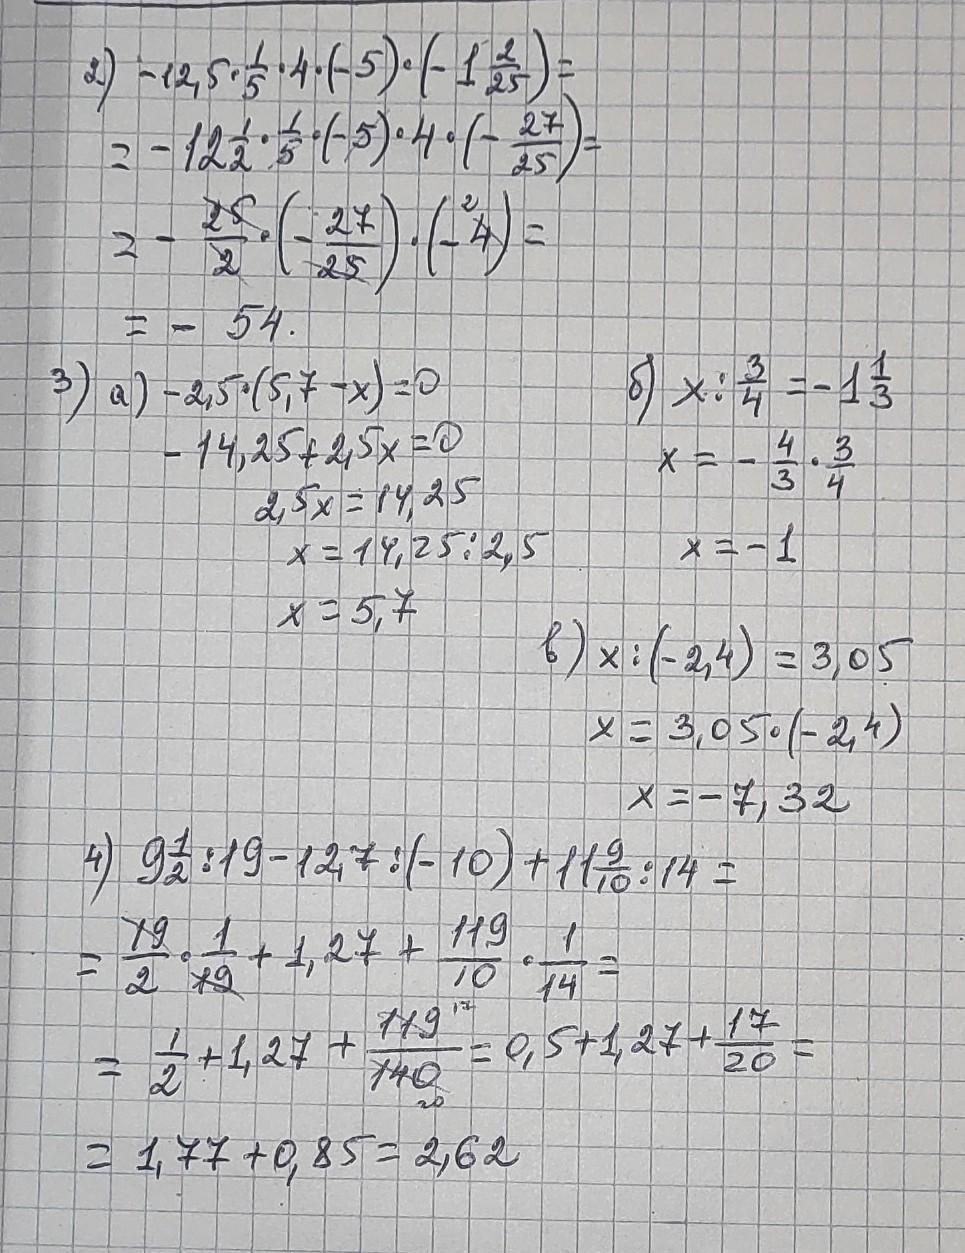 2) -12,5·1/5·4·(-5)·(-1 2/25)=
= -12 1/2·1/5·(-5)·4·(-27/25)=
= - 25/2·(-27/25)·(-4)² =
= - 54.
3) а) -2,5·(5,7-x)=0
-14,25+2,5x=0
2,5x=14,25
x=14,25:2,5
x=5,7
б) x:3/4=-1 1/3
x = -4/3·3/4
x = -1
в) x:(-2,4) = 3,05
x = 3,05·(-2,4)
x = -7,32
4) 9 1/2:19-12,7:(-10)+11 9/10:14=
= 19/2·1/19+1,27+119/10·1/14=
= 1/2+1,27+119 17/140 20=0,5+1,27+17/20=
= 1,77+0,85=2,62